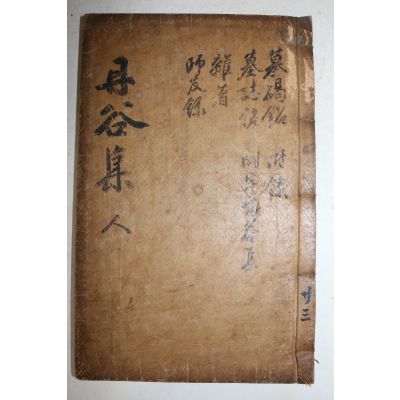 墓碣銘 附錄
墓誌銘 附
雜著
師友錄
丹谷集 人
共三